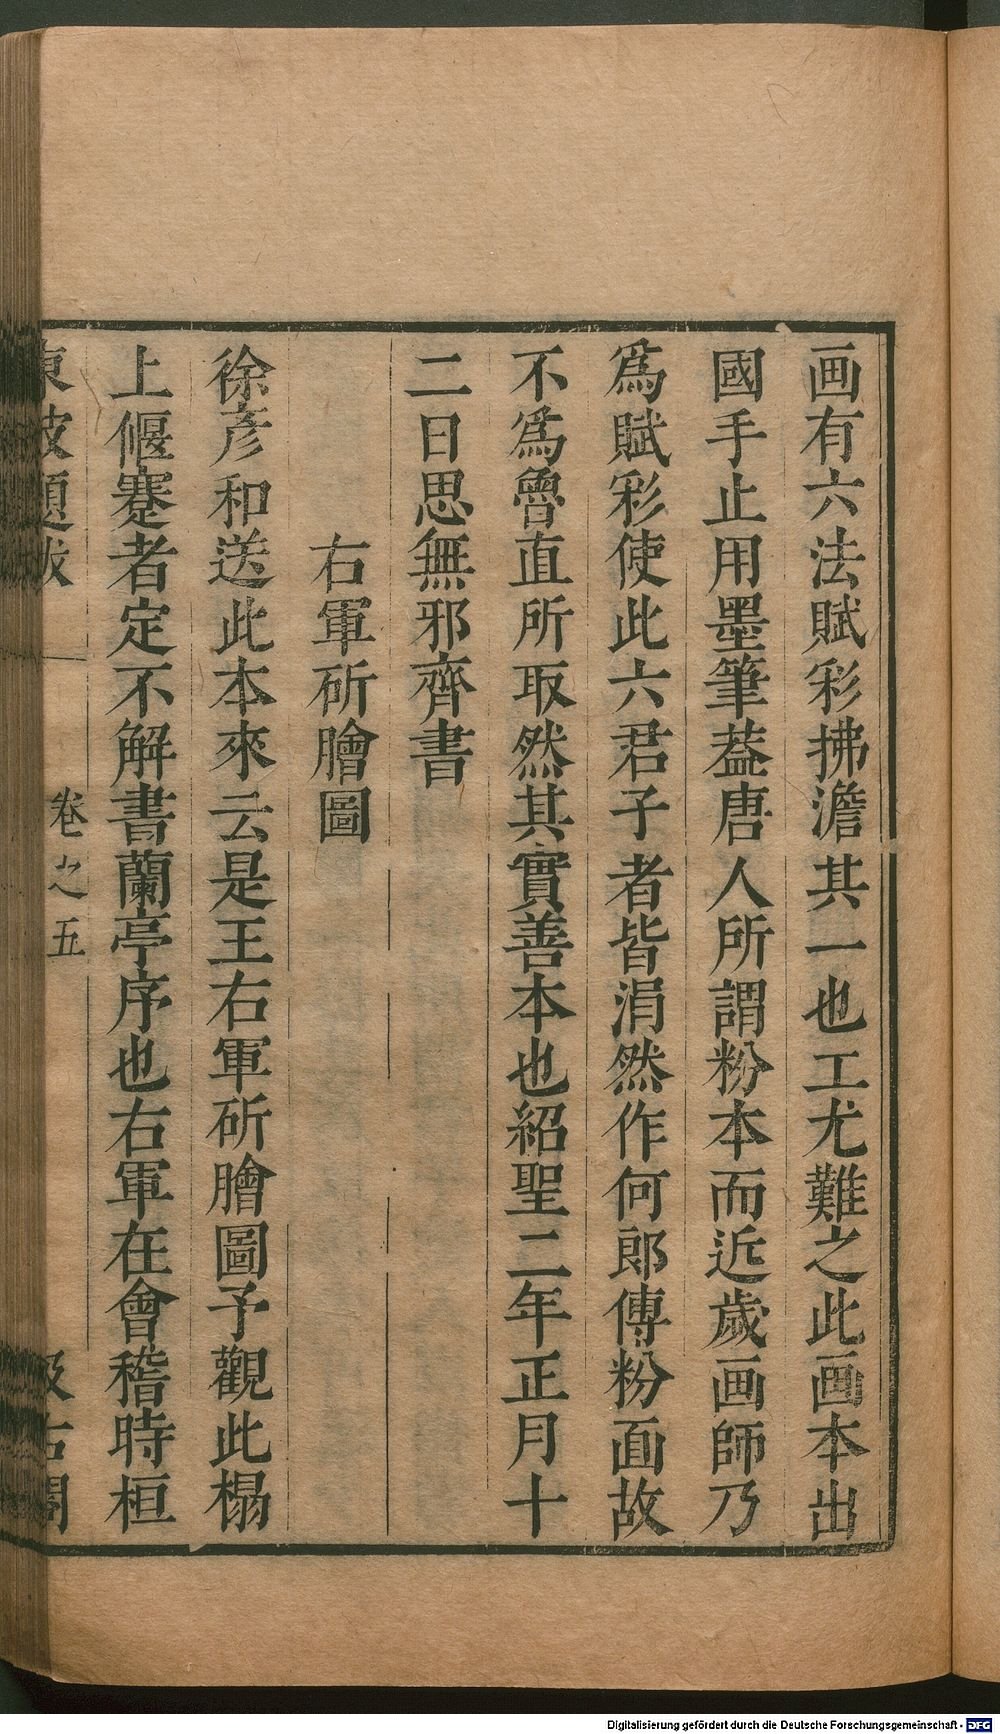 画有六法賦彩拂澹其一也工尤難之此画本出
國手止用墨筆葢唐人所謂粉本而近歲画師乃
爲賦彩使此六君子者皆涓然作何郎傅粉面故
不爲魯直所取然其實善本也紹聖二年正月十
二日思無邪齊書
右軍斫膾圖
徐彥和送此本來云是王右軍斫膾圖予觀此榻
上偃蹇者定不解書蘭亭序也右軍在會稽時桓
東坡題跋 卷之五 汲古閣
Digitalisierung gefördert durch die Deutsche Forschungsgemeinschaft - DFG